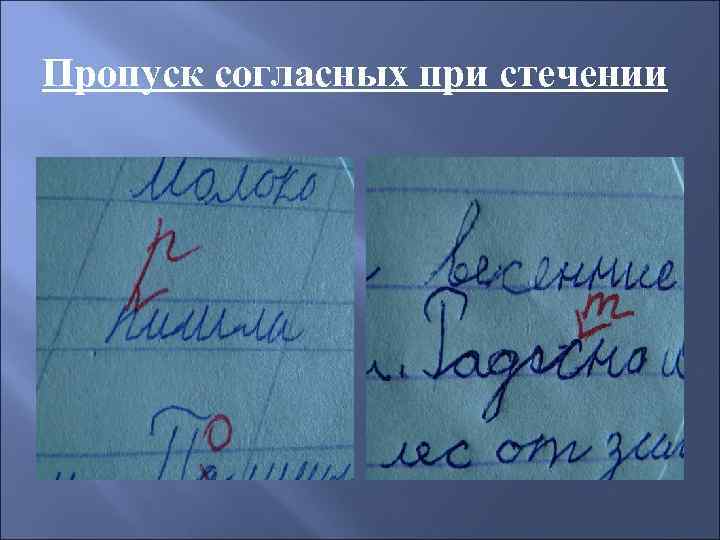 Пропуск согласных при стечении
Молоко
р
пишила
о
весенние
т
Радосно
лес от